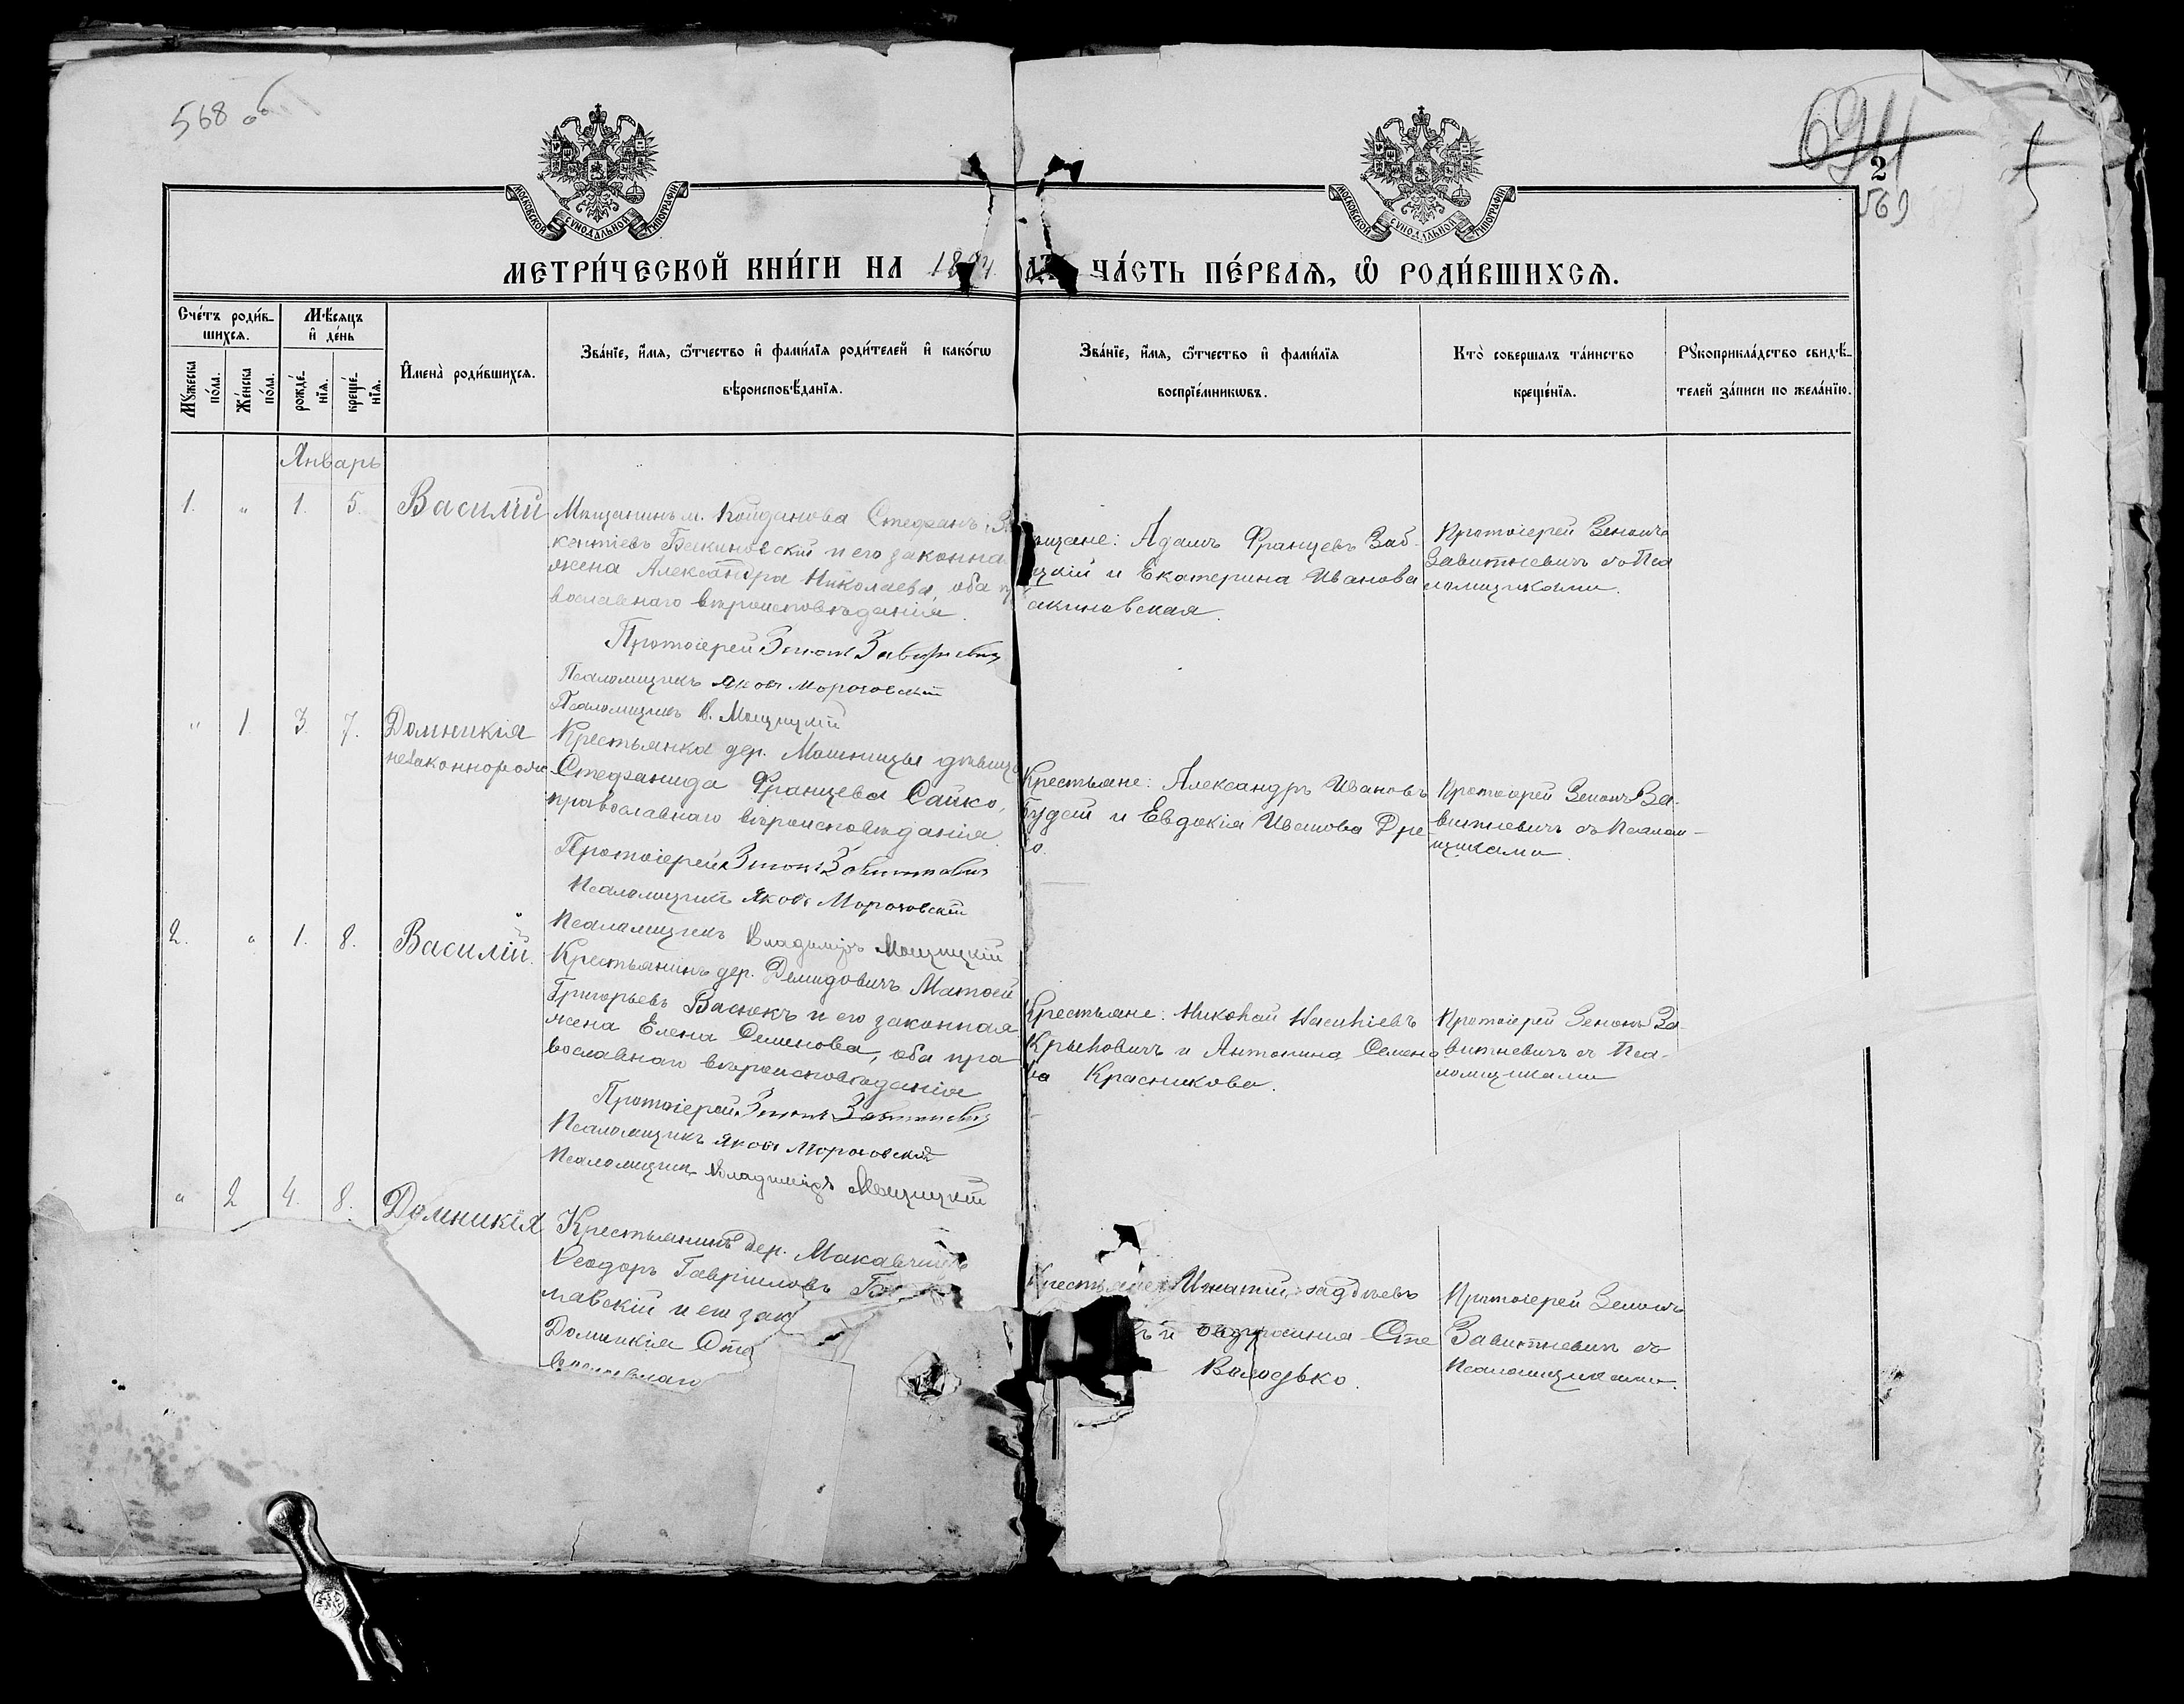 568 об
694
2
569
МОСКОВСКОЙ СУНОДАЛЬНОЙ ТИПОГРАФІИ
МОСКОВСКОЙ СУНОДАЛЬНОЙ ТИПОГРАФІИ
МЕТРИ́ЧЕСКОЙ КНИ́ГИ НА 1894 ЧА́СТЬ ПЕ́РВАѦ, Ѽ РОДИ́ВШИХСѦ.
Сче́тъ роди́в-
шихсѧ.
Мѣ́сѧцъ
и҆ де́нь
Мꙋ́жеска по́ла.
Же́нска по́ла.
рожде́-
нїѧ.
креще́-
нїѧ.
И҆мена̀ роди́вшихсѧ.
Зва́нїе, и҆́мѧ, ѻ҆́тчество и҆ фами́лїѧ роди́телей и҆ како́гѡ
вѣроисповѣ́данїѧ.
Зва́нїе, и҆́мѧ, ѻ҆́тчество и҆ фами́лїѧ
воспрїе́мникѡвъ.
Кто̀ соверша́лъ та́инство
креще́нїѧ.
Рꙋкоприкла́дство свидѣ́-
телей за́писи по жела́нїю.
Январь
1. " 1. 5. Василій
Мѣщанинъ м. Койданова Стефанъ
кентіевъ Бакиновскій и его законна
жена Александра Николаева, оба п
вославнаго вѣроисповѣданія.
Протоіерей Зенонъ Завитневичъ
Псаломщикъ Яковъ Морозовскій
Псаломщикъ В. Мощицкій
щане: Адамъ Францевъ Заб-
цкій и Екатерина Иванова
акиновская.
Протоіерей Зенонъ
Завитневичъ съ Пса
ломщиками.
" 1 3 7. Домникія
незаконнорож
Крестьянка дер. Машницы дѣвица
Стефанида Францева Сайко,
православнаго вѣроисповѣданія.
Протоіерей Зенонъ Завитневичъ
Псаломщикъ Яковъ Морозовскій
Псаломщикъ Владиміръ Мощицкій
Крестьяне: Александръ Ивановъ
Будей и Евдокія Иванова Дре-
Протоіерей Зенонъ За-
витневичъ съ Псалом-
щиками.
2. " 1. 8. Василій.
Крестьянинъ дер. Демидовичъ Матѳей
Григорьевъ Васюкъ и его законная
жена Елена Семенова, оба пра
вославнаго вѣроисповѣданія
Протоіерей Зенонъ Завитневичъ
Псаломщикъ Яковъ Морозовскій
Псаломщикъ Владиміръ Мощицкій
Крестьяне: Николай Василіевъ
Крыловичъ и Антонина Семено
ва Красникова.
Протоіерей Зенонъ За-
витневичъ съ Пса-
ломщиками
" 2 4. 8. Домникія
Крестьянинъ дер. Макавчицъ
Ѳеодоръ Гавріиловъ
лавскій и его зак
Домникія Сте
Крестьяне Игнатій
ъ и Евфросинія Сте
Володько.
Протоіерей Зенонъ
Завитневичъ съ
Псаломщиками.